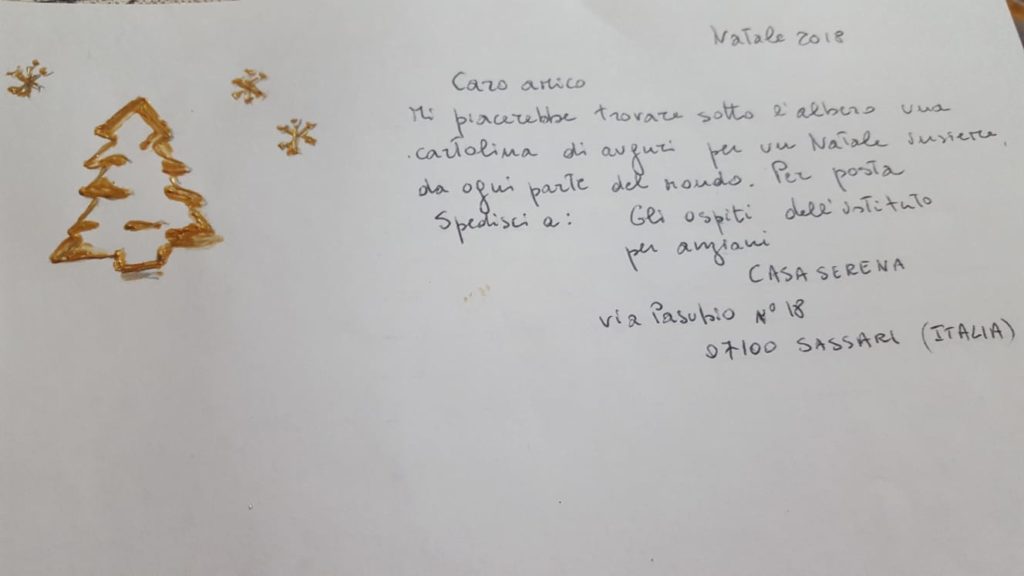 Natale 2018
Caro amico
Mi piacerebbe trovare sotto l'albero una
cartolina di auguri per un Natale insieme,
da ogni parte del mondo. Per posta
Spedisci a: Gli ospiti dell'istituto
per anziani
CASA SERENA
via Pasubio N° 18
07100 SASSARI (ITALIA)